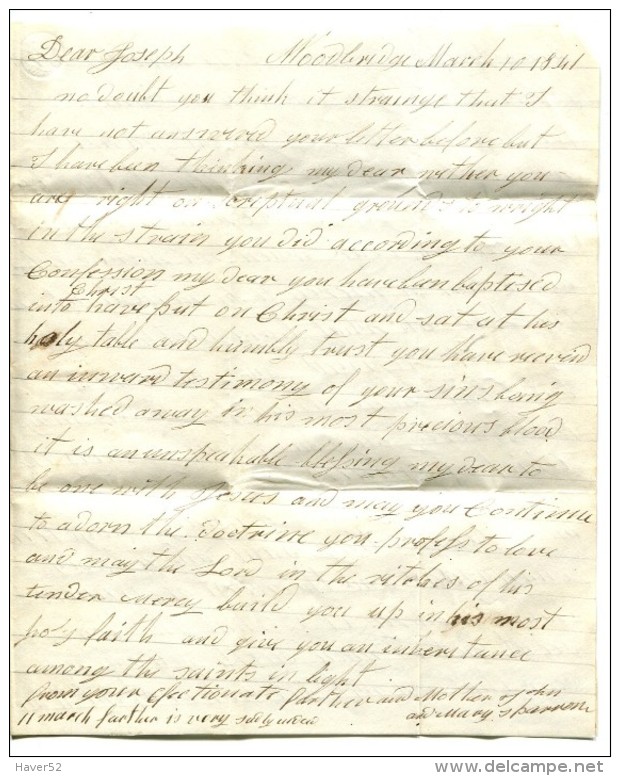 Dear Joseph Woodbridge March 10 1841
no doubt you think it strainge that I
have not answered your letter before but
I have ben thinking my dear wether you
are right on scriptual grounds to wright
in the strain you did according to your
Confession my dear you have ben baptised
into Christ have put on Christ and sat at his
holy table and humbly trust you have receved
an inward testimony of your sins being
washed away in his most precious blood
it is an unspeakable blessing my dear to
be one with Jesus and may you Continue
to adorn the doctrine you profess to love
and may the Lord in the ritches of his
tender mercy build you up in his most
holy faith and give you an inheritance
among the saints in light
from your efectionate farther and Mother John
and Mary Sparrow
11 march farther is very
Haver52
delcampe.net